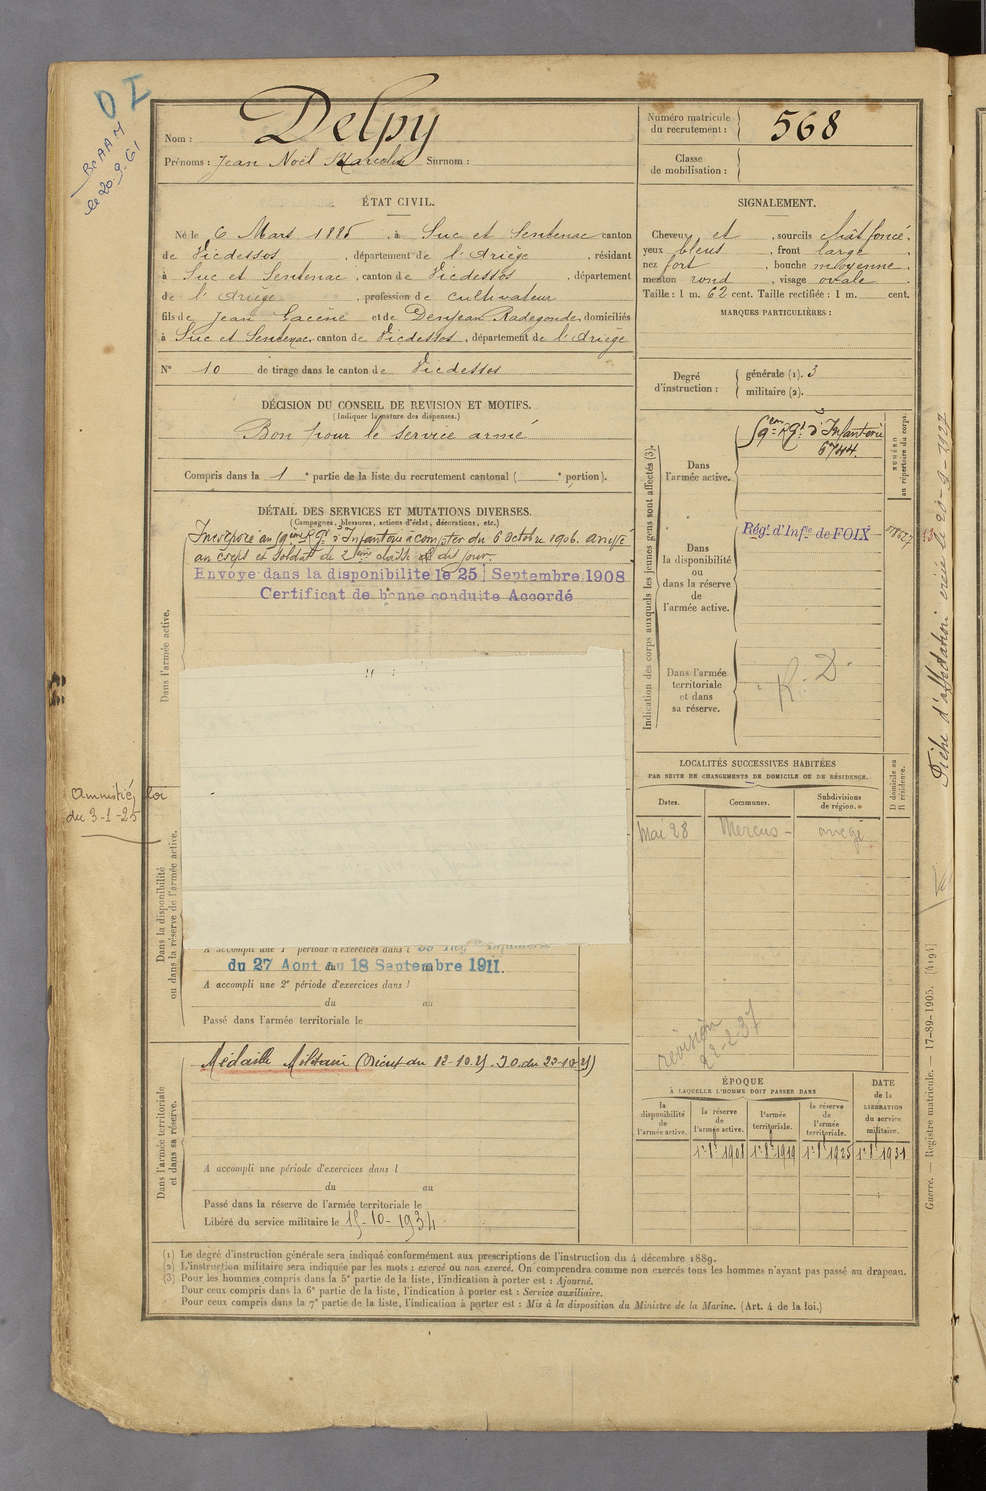 O I
BCAAM
le 20.9.61
Nom : Delpy
Prénoms : Jean Noël Marcelin Surnom :
Numéro matricule du recrutement : 568
Classe de mobilisation :
ÉTAT CIVIL.
Né le 6 Mars 1885, à Suc et Sentenac canton
de Vicdessos, département de l'Ariège, résidant
à Suc et Sentenac, canton de Vicdessos, département
de l'Ariège, profession de cultivateur
fils de Jean Lacène et de Denjean Radegonde, domiciliés
à Suc et Sentenac, canton de Vicdessos, département de l'Ariège
N° 10 de tirage dans le canton de Vicdessos
SIGNALEMENT.
Cheveux et, sourcils chât foncé.
yeux bleus, front large
nez fort, bouche moyenne.
menton rond, visage ovale
Taille : 1 m. 62 cent. Taille rectifiée : 1 m. cent.
MARQUES PARTICULIÈRES :
DÉCISION DU CONSEIL DE REVISION ET MOTIFS.
(Indiquer la nature des dispenses.)
Bon pour le service armé
Compris dans la 1e partie de la liste du recrutement cantonal ( e portion).
Degré d'instruction :
générale (1). 3
militaire (2).
DÉTAIL DES SERVICES ET MUTATIONS DIVERSES.
(Campagnes, blessures, actions d'éclat, décorations, etc.)
Incorporé au 59ème Rgt d'Infanterie à compter du 6 octobre 1906. arrivé
au corps et soldat de 2ème classe le dit jour.
Envoyé dans la disponibilité le 25 Septembre 1908
Certificat de bonne conduite Accordé
Dans l'armée active.
Amnistié loi
du 3-1-25
Dans la disponibilité
ou dans la réserve de l'armée active.
A accompli une 1e période d'exercices dans l
du 27 Aout au 18 Septembre 1911.
A accompli une 2e période d'exercices dans l
du au
Passé dans l'armée territoriale le
Dans l'armée territoriale
et dans sa réserve.
Médaille Militaire (Décret du 12-10-25. J.O. du 22-10-25)
A accompli une période d'exercices dans l
du au
Passé dans la réserve de l'armée territoriale le
Libéré du service militaire le 15-10-1934
Indication des corps auxquels les jeunes gens sont affectés (3).
NUMÉRO
au répertoire du corps.
Dans l'armée active.
59ème Rgt d'Infanterie
6744.
Dans la disponibilité ou dans la réserve de l'armée active.
Régt d'Infie de FOIX
Dans l'armée territoriale et dans sa réserve.
R. D
LOCALITÉS SUCCESSIVES HABITÉES
PAR SUITE DE CHANGEMENTS DE DOMICILE OU DE RÉSIDENCE.
D domicile ou
R résidence.
Dates. Communes. Subdivisions de région.
Mai 28 Mercus - ariège
révision
22-2-37
ÉPOQUE
À LAQUELLE L'HOMME DOIT PASSER DANS
la disponibilité de l'armée active.
la réserve de l'armée active.
l'armée territoriale.
la réserve de l'armée territoriale.
DATE de la LIBÉRATION du service militaire.
Fiche d'affectation créée le 20-9-1127
Guerre. — Registre matricule. — 17-89-1905. [4194]
(1) Le degré d'instruction générale sera indiqué conformément aux prescriptions de l'instruction du 4 décembre 1889.
(2) L'instruction militaire sera indiquée par les mots : exercé ou non exercé. On comprendra comme non exercés tous les hommes n'ayant pas passé au drapeau.
(3) Pour les hommes compris dans la 5e partie de la liste, l'indication à porter est : Ajourné.
Pour ceux compris dans la 6e partie de la liste, l'indication à porter est : Service auxiliaire.
Pour ceux compris dans la 7e partie de la liste, l'indication à porter est : Mis à la disposition du Ministre de la Marine. (Art. 4 de la loi.)